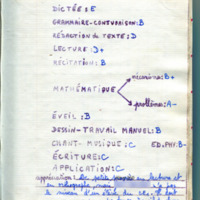 DICTÉE : E
GRAMMAIRE - CONJUGAISON : B
RÉDACTION de TEXTE : D
LECTURE : D+
RÉCITATION : B
MATHÉMATIQUE
mécanisme : B+
problème : A-
ÉVEIL : B
DESSIN - TRAVAIL MANUEL : B
CHANT - MUSIQUE : C ED. PHY: B-
ÉCRITURE : C
APPLICATION : C
appréciation : De petits progrès en lecture et
en orthographe mais
le niveau d'un élève de